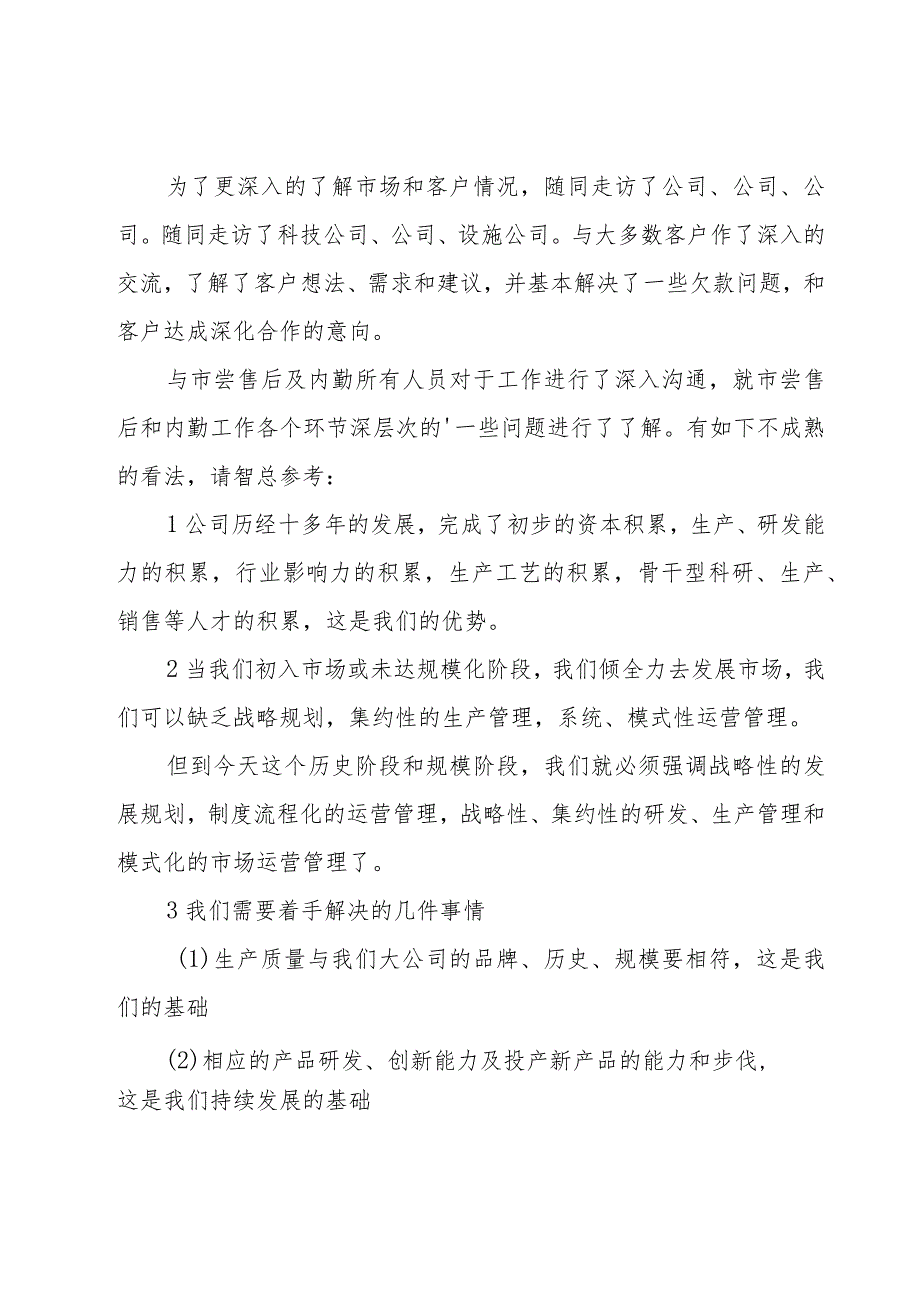 为了更深入的了解市场和客户情况，随同走访了公司、公司、公
司。随同走访了科技公司、公司、设施公司。与大多数客户作了深入的
交流，了解了客户想法、需求和建议，并基本解决了一些欠款问题，和
客户达成深化合作的意向。
与市尝售后及内勤所有人员对于工作进行了深入沟通，就市尝售
后和内勤工作各个环节深层次的'一些问题进行了了解。有如下不成熟
的看法，请智总参考：
1 公司历经十多年的发展，完成了初步的资本积累，生产、研发能
力的积累，行业影响力的积累，生产工艺的积累，骨干型科研、生产、
销售等人才的积累，这是我们的优势。
2 当我们初入市场或未达规模化阶段，我们倾全力去发展市场，我
们可以缺乏战略规划，集约性的生产管理，系统、模式性运营管理。
但到今天这个历史阶段和规模阶段，我们就必须强调战略性的发
展规划，制度流程化的运营管理，战略性、集约性的研发、生产管理和
模式化的市场运营管理了。
3 我们需要着手解决的几件事情
(1)生产质量与我们大公司的品牌、历史、规模要相符，这是我
们的基础
(2)相应的产品研发、创新能力及投产新产品的能力和步伐，
这是我们持续发展的基础